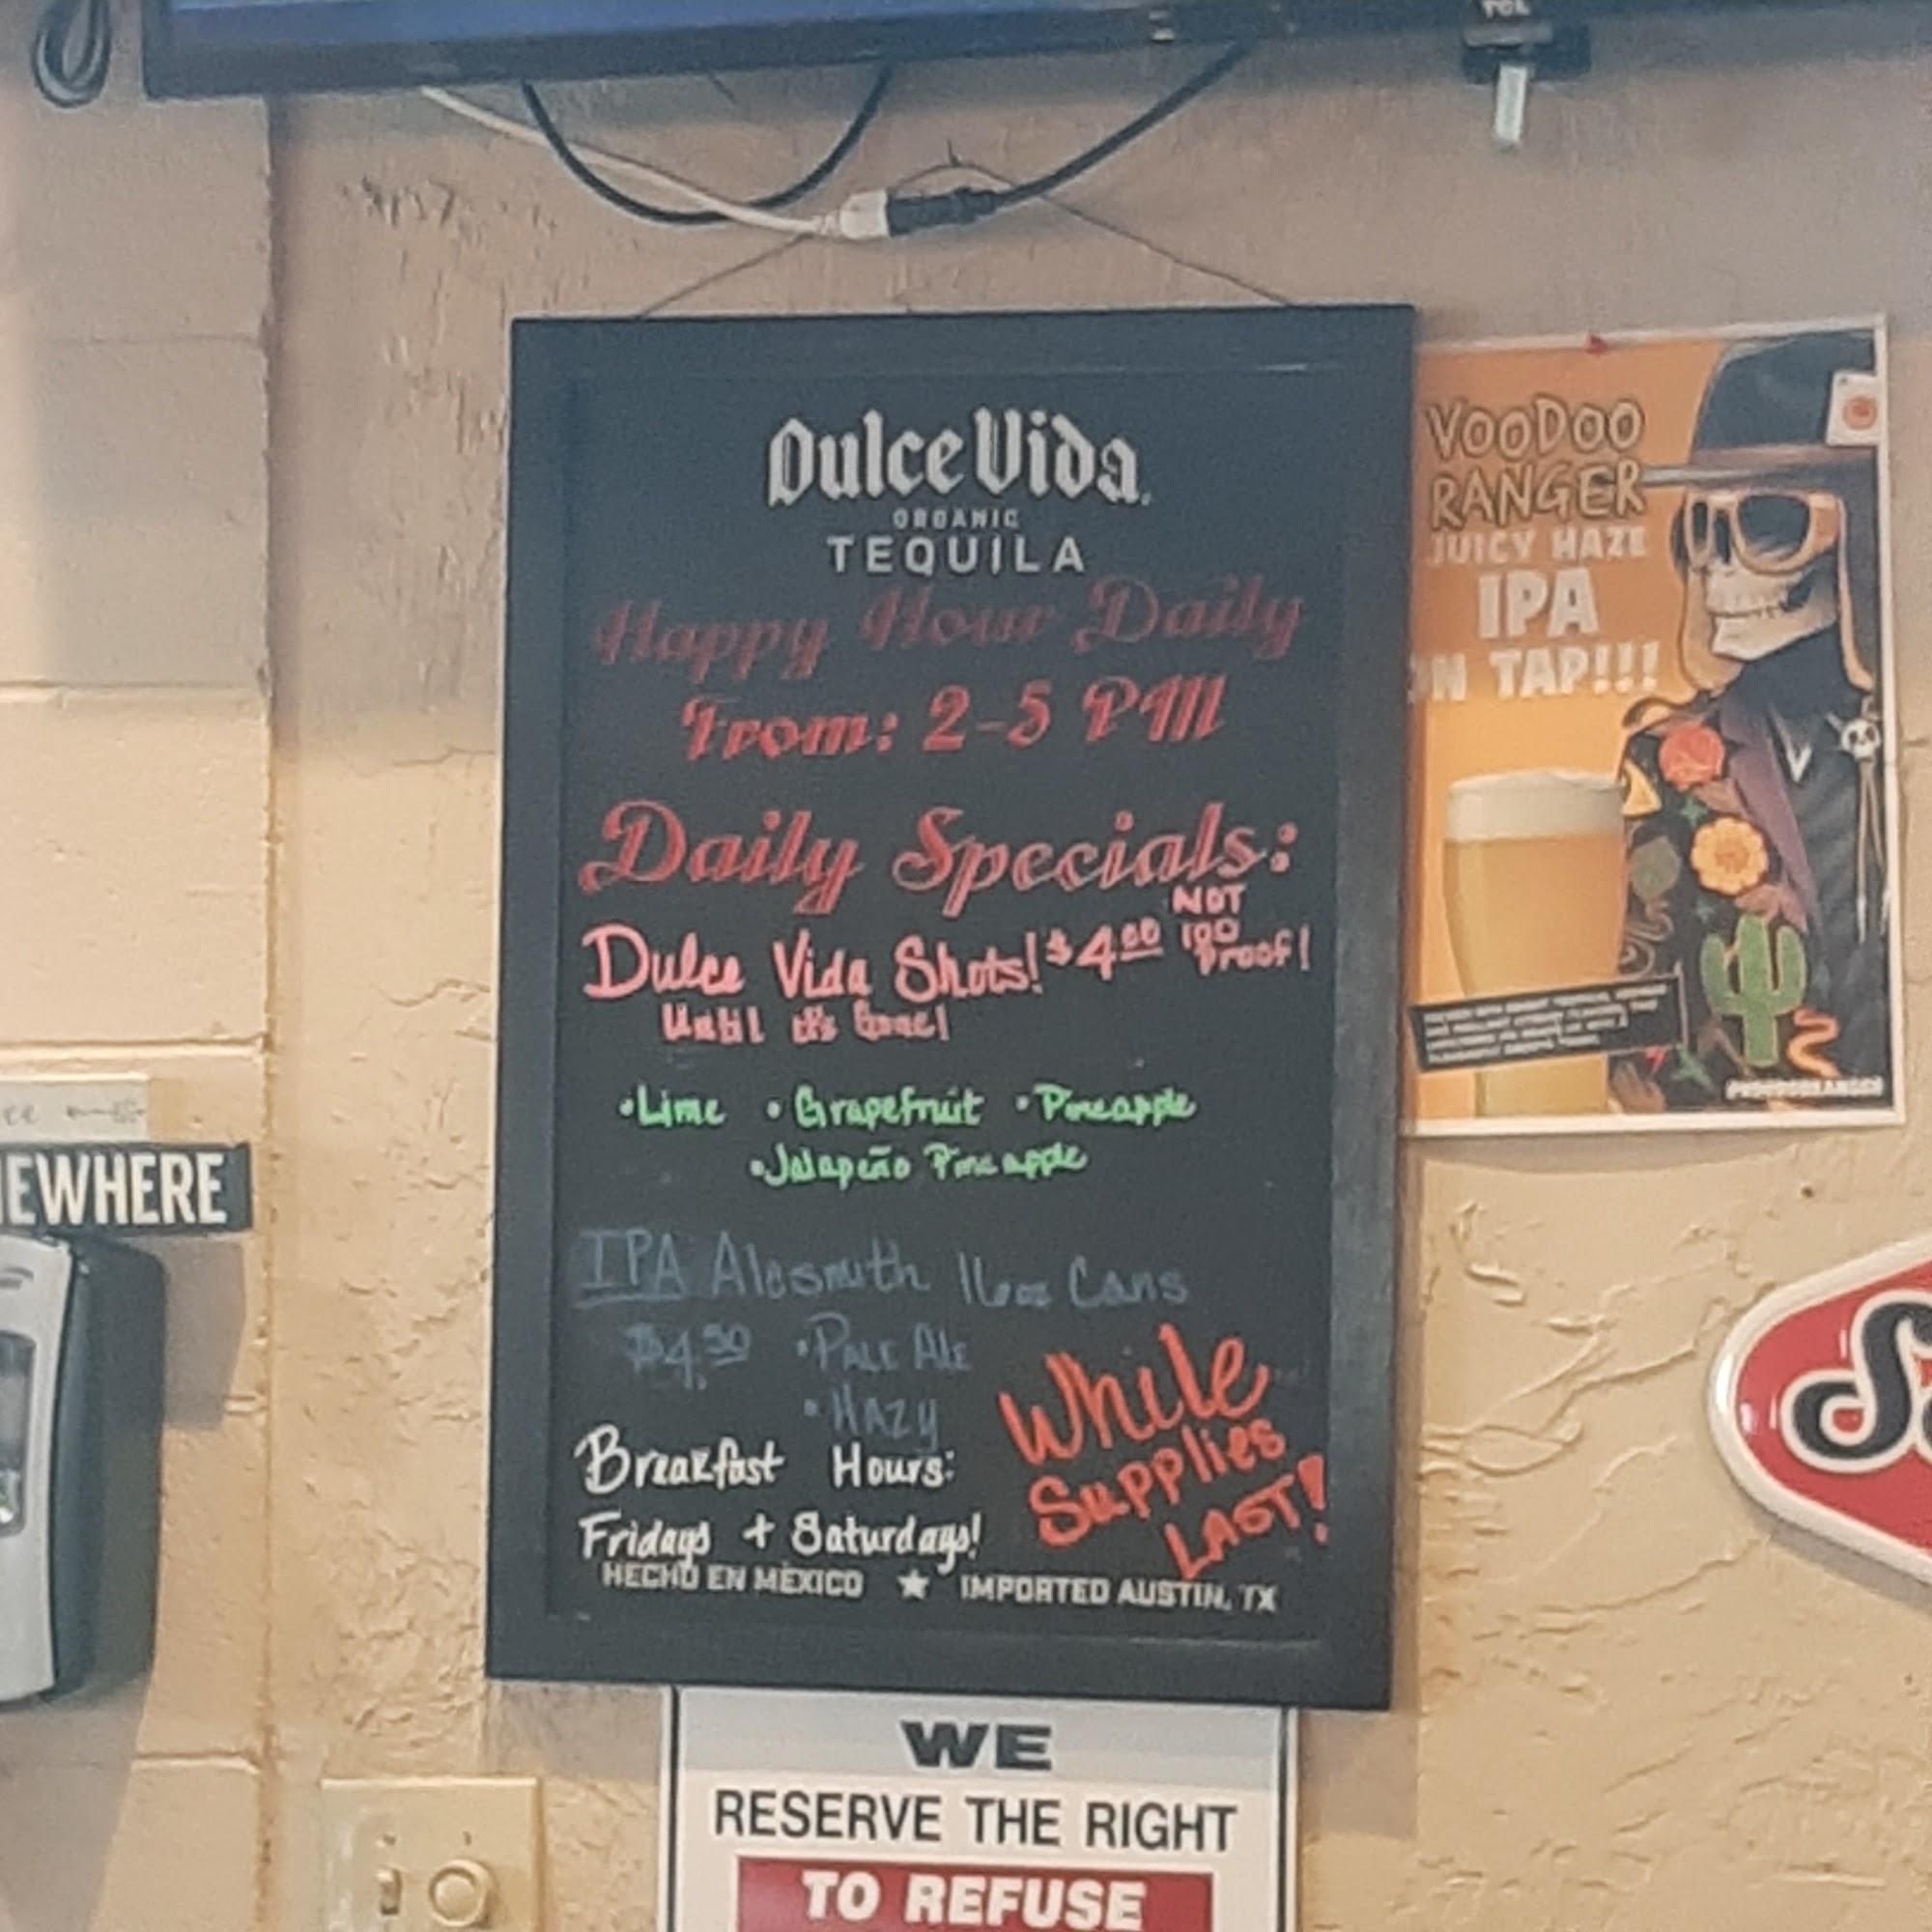 TCL
Dulce Vida
ORGANIC
TEQUILA
Happy Hour Daily
From: 2-5 PM
Daily Specials:
Dulce Vida Shots! $4.00 NOT 100 Proof!
Until it's Gone!
• Lime • Grapefruit • Pineapple
• Jalapeño Pineapple
IPA Alesmith 16oz Cans
$4.50 • PALE ALE
• HAZY
While
Supplies
LAST!
Breakfast Hours:
Fridays + Saturdays!
HECHO EN MEXICO ★ IMPORTED AUSTIN, TX
VOODOO
RANGER
JUICY HAZE
IPA
ON TAP!!!
EWHERE
WE
RESERVE THE RIGHT
TO REFUSE